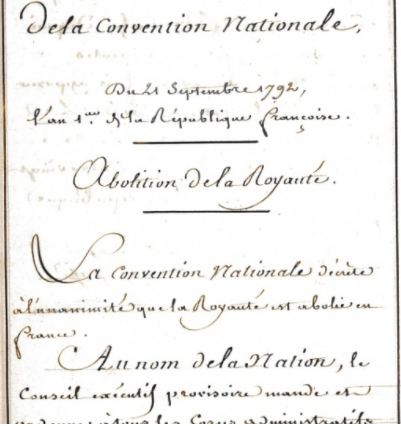 De la Convention Nationale,
Du 21 Septembre 1792,
L'an 1.er de la République françoise.
Abolition de la Royauté.
La Convention Nationale décrète
à l'unanimité que la Royauté est abolie en
france.
Au nom de la Nation, le
Conseil exécutif provisoire mande et
ordonne à tous les Corps administratifs